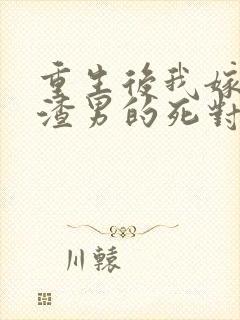 重生後我嫁
渣男的死對
川轅